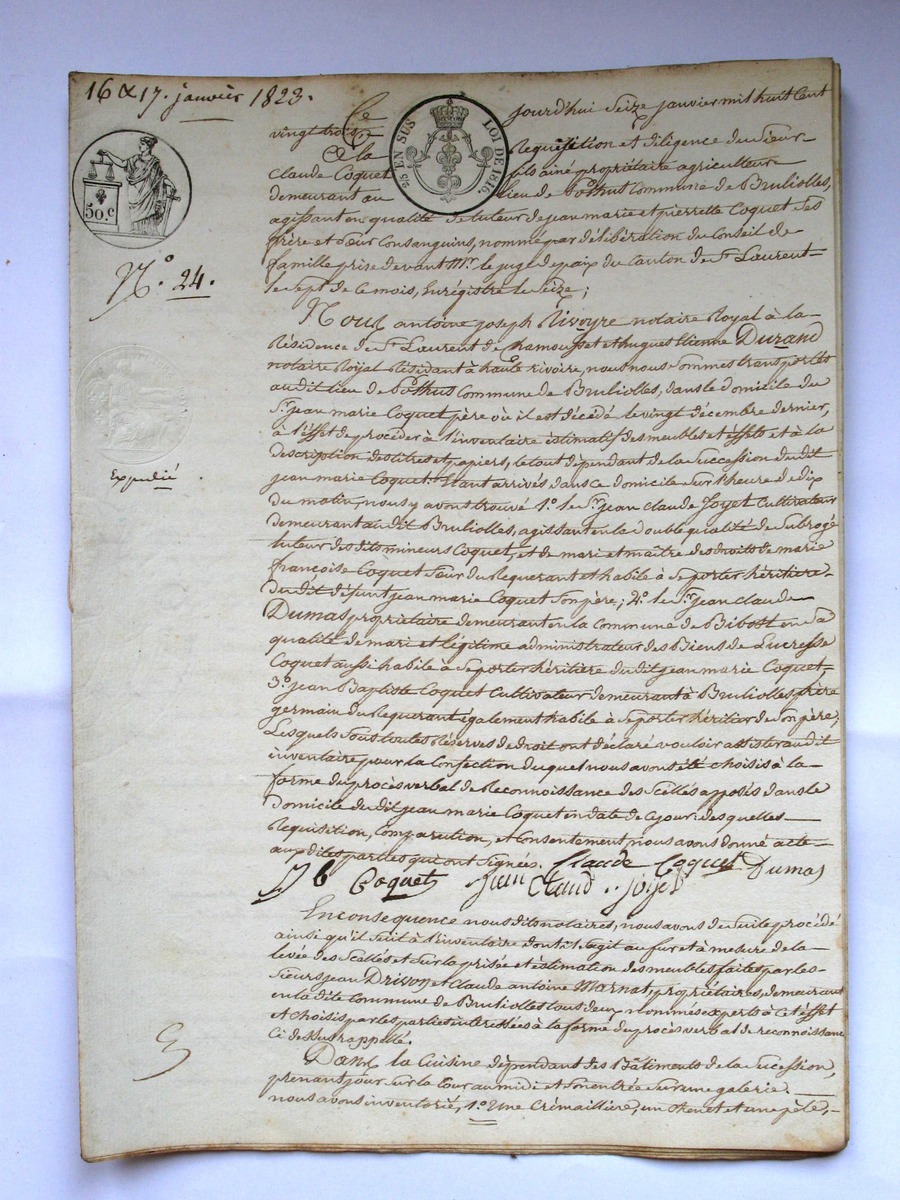 16 & 17. janvier 1823.
Ce jourd'hui Seize janvier mil huit Cent
vingt trois
25 EN SUS LOI DE 1816.
50. c
a la Requisition et diligence du Sieur
Claude Coquet fils ainé propriétaire agriculteur
demeurant au lieu de Commune de Brulliolles,
agissant en qualité de tuteur de jean marie et pierrette Coquet Ses
frère et Sœur Consanguins, nommé par délibération du Conseil de
famille prise devant Mr. le juge de paix du Canton de St Laurent
le Sept de Ce mois, Enrégistré le Seize;
N.o 24.
Nous antoine joseph Rivoyre notaire Royal à la
Résidence de St Laurent de Chamousset et hugues Etienne Durand
notaire Royal Résidant à haute rivoire, nous nous Sommes transportés
audit lieu de Commune de Brulliolles, dans le domicile du
Sr. jean marie Coquet père où il est décédé le vingt décembre dernier,
à l'éffet de procéder à l'inventaire éstimatif des meubles et éffets et à la
description des titres et papiers, le tout dépendant de la Succession dudit
jean marie Coquet. Etant arrivés dans Ce domicile Sur l'heure de dix
Expédié
du matin, nous y avons trouvé 1.o le Sr. jean Claude Joyet Cultivateur
demeurant audit Brulliolles, agissant en la double qualité de Subrogé
tuteur des dits mineurs Coquet, et de mari et maître des droits de marie
françoise Coquet Sœur du Requerant et habile à Se porter héritière
dudit défunt jean marie Coquet Son père; 2.o le Sr. jean Claude
Dumas propriétaire demeurant en la Commune de Bibost en Sa
qualité de mari et légitime administrateur des Biens de Lucresse
Coquet aussi habile à Se porter héritière dudit jean marie Coquet
3.o jean Baptiste Coquet Cultivateur demeurant à Brulliolles frère
germain du Requerant également habile à Se porter héritier de Son père;
Lesquels Sous toutes Réserves de droit ont déclaré vouloir assister audit
inventaire pour la Confection duquel nous avons été choisis à la
forme du procès verbal de Reconnoissance des Scellés apposés dans le
Domicile dudit jean marie Coquet en date de Ce jour: des quelles
Requisition, Comparution, et Consentement, nous avons donné acte
aux dites parties qui ont Signées. Claude Coquet Dumas
J B Coquet jean Claud Joyet
En Consequence nous dits notaires, nous avons de Suite procédé
ainsi qu'il Suit à l'inventaire dont il S'agit au fur et à mesure de la
levée des Scellés et Sur la prisée et éstimation des meubles faites par les
Sieurs jean Drivon et Claude antoine Marnat, propriétaires, demeurant
en la dite Commune de Brulliolles tous deux nommés experts à Cet éffet
et choisis par les parties intéressées à la forme du procès verbal de reconnoissance
Ci dessus rappellé.
Dans la Cuisine dépendant des Bâtiments de la Succession,
prenant jour Sur la Cour au midi et Son entrée Sur une galerie.
nous avons inventorié, 1.o Une Crémaillière, un Chenet et une pèle,